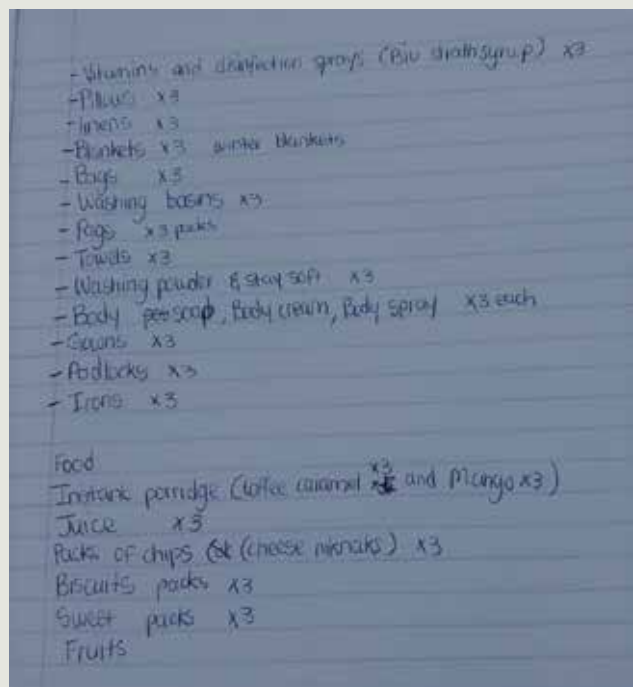 - Vitamins and disinfection sprays (Bio strath syrup) x3
- Pillows x3
- linens x3
- Blankets x3 winter blankets
- Bags x3
- Washing basins x3
- Pegs x3 packs
- Towels x3
- Washing powder & stay soft x3
- Body soap, Body cream, Body spray x3 each
- Gowns x3
- Padlocks x3
- Irons x3
Food
Instant porridge (toffee caramel x3 and Mango x3)
Juice x3
Packs of chips (cheese niknaks) x3
Biscuits packs x3
Sweet packs x3
Fruits